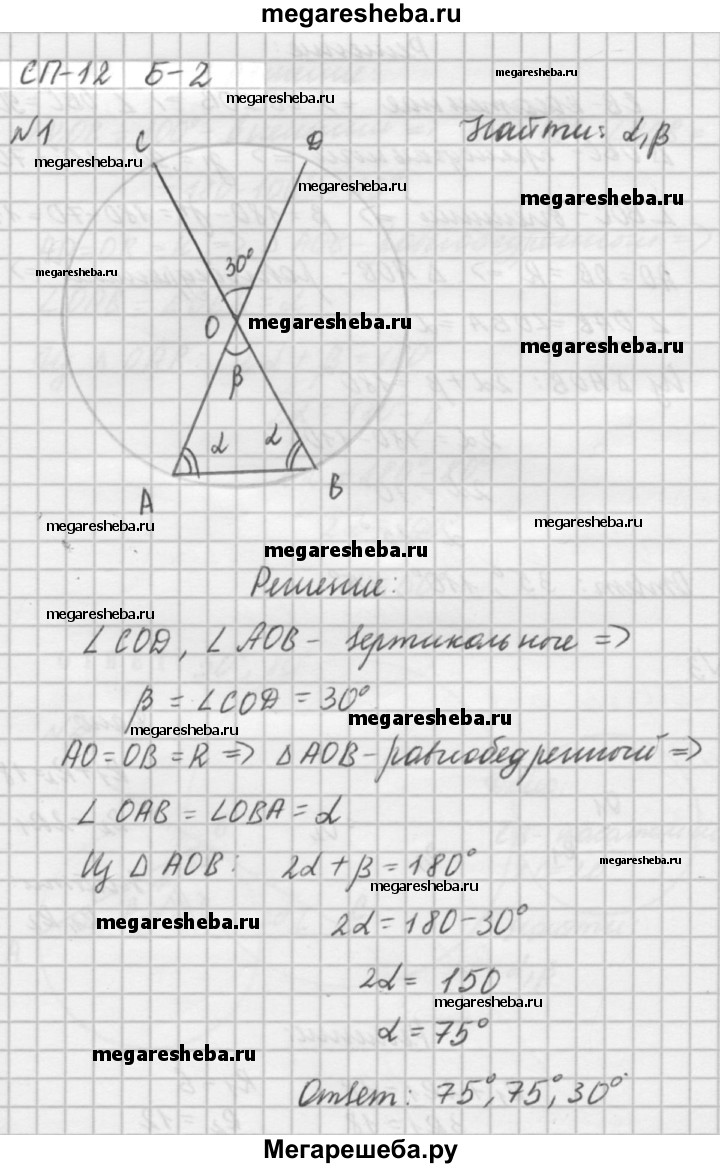 megaresheba.ru
СП-12 Б-2
megaresheba.ru
megaresheba.ru
№1
C
D
Найти: α, β
megaresheba.ru
megaresheba.ru
megaresheba.ru
30°
megaresheba.ru
O
megaresheba.ru
megaresheba.ru
β
α
α
A
B
megaresheba.ru
megaresheba.ru
megaresheba.ru
Решение:
megaresheba.ru
∠COD, ∠AOB - вертикальные =>
β = ∠COD = 30°
megaresheba.ru
megaresheba.ru
AO = OB = R => △AOB - равнобедренный =>
∠OAB = ∠OBA = α
Из △AOB: 2α + β = 180°
megaresheba.ru
megaresheba.ru
megaresheba.ru
2α = 180 - 30°
2α = 150
megaresheba.ru
α = 75°
megaresheba.ru
Ответ: 75°, 75°, 30°
Мегарешеба.ру